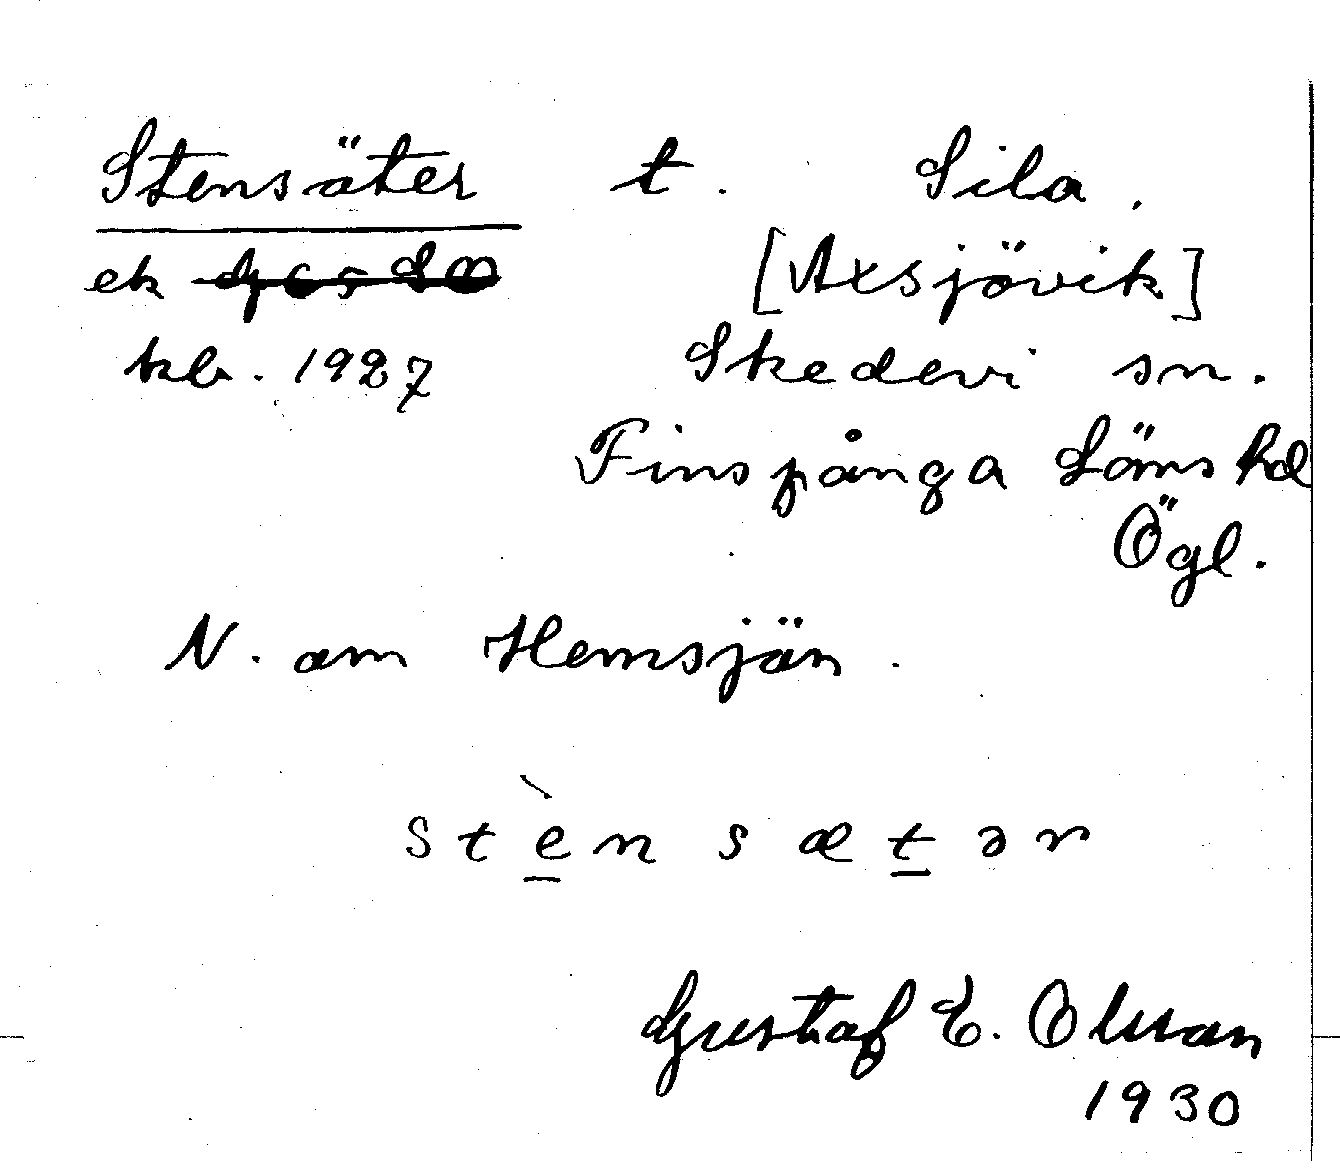 Stensäter t. Sila.
ek [Axsjövik]
kb. 1927 Skedevi sn.
Finspånga Läns hd
Ögl.
N. om Hemsjön.
stènsætər
Gustaf E. Olsson
1930